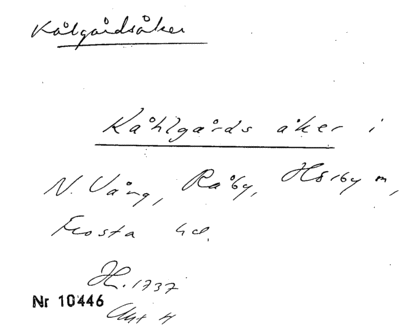 Kålgårdsåker
Kåhlgårds åker i
N. Vång, Råby, Hörby m,
Frosta hd.
H. 1737
Nr 10446
Akt 4